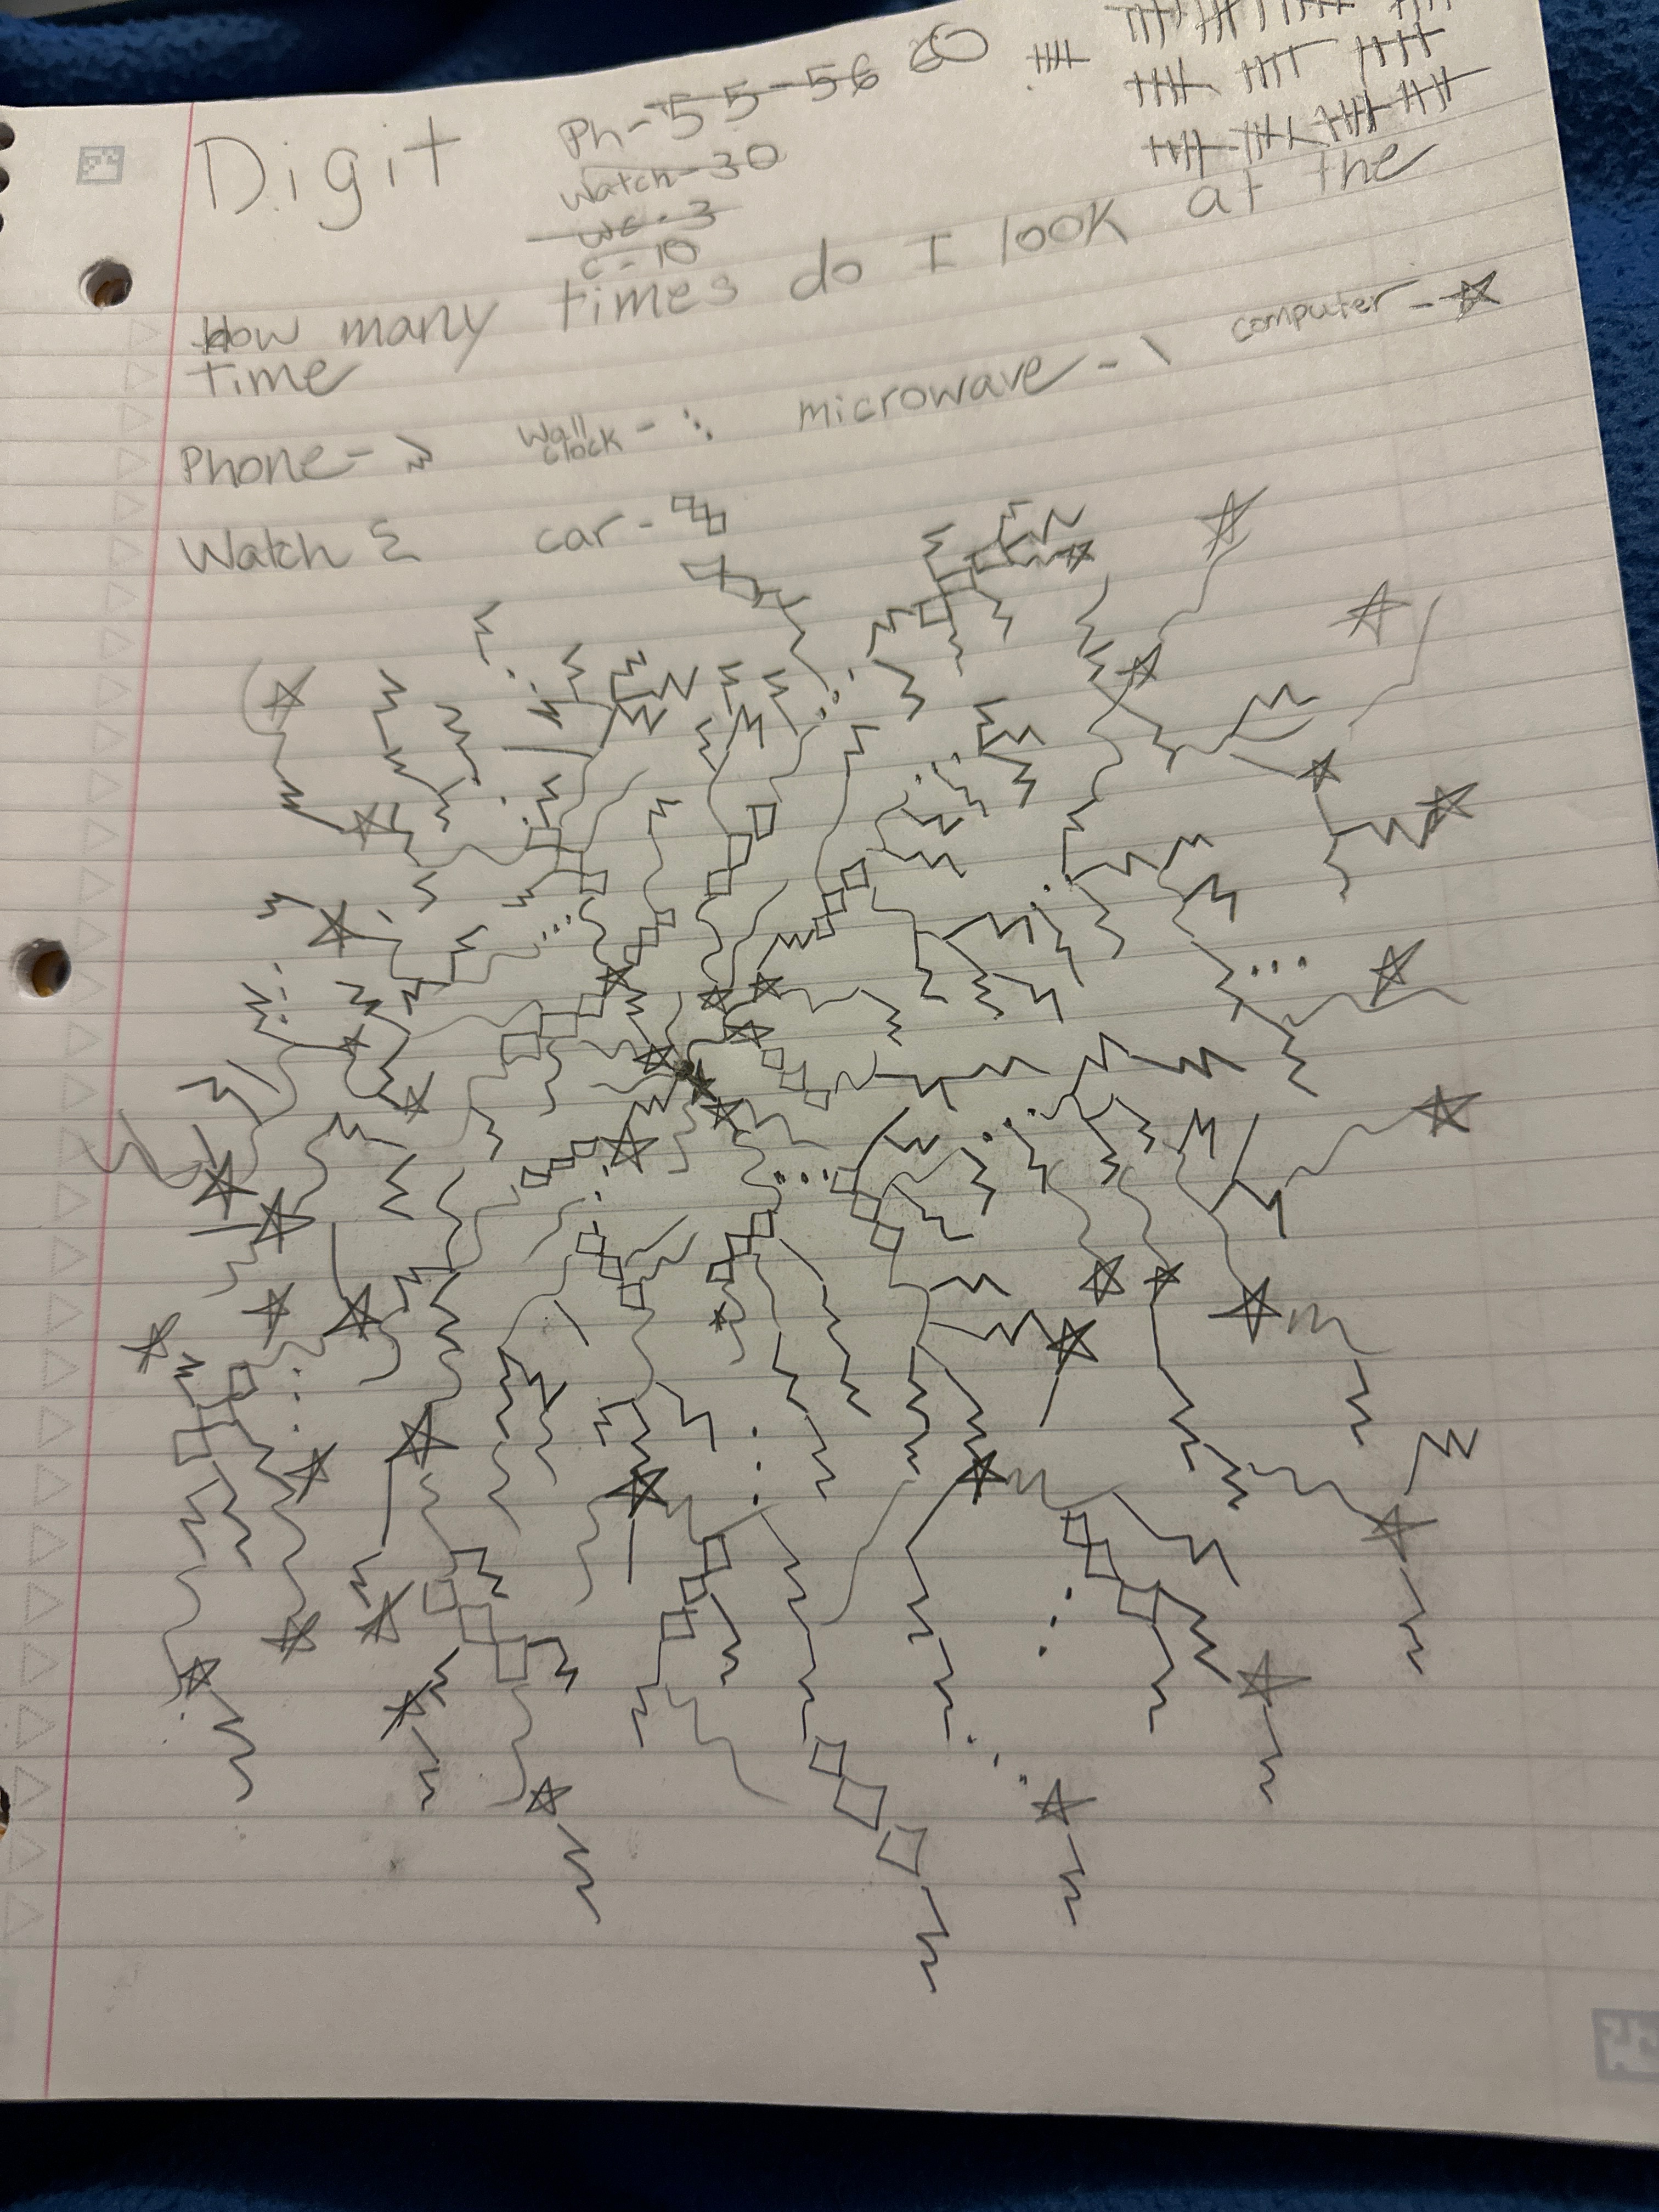 Digit
Ph-55-56 60
Watch-30
wc-3
c-10
How many times do I look at the
time
Phone-
wall clock -
microwave - \
computer - ☆
Watch Σ
car -